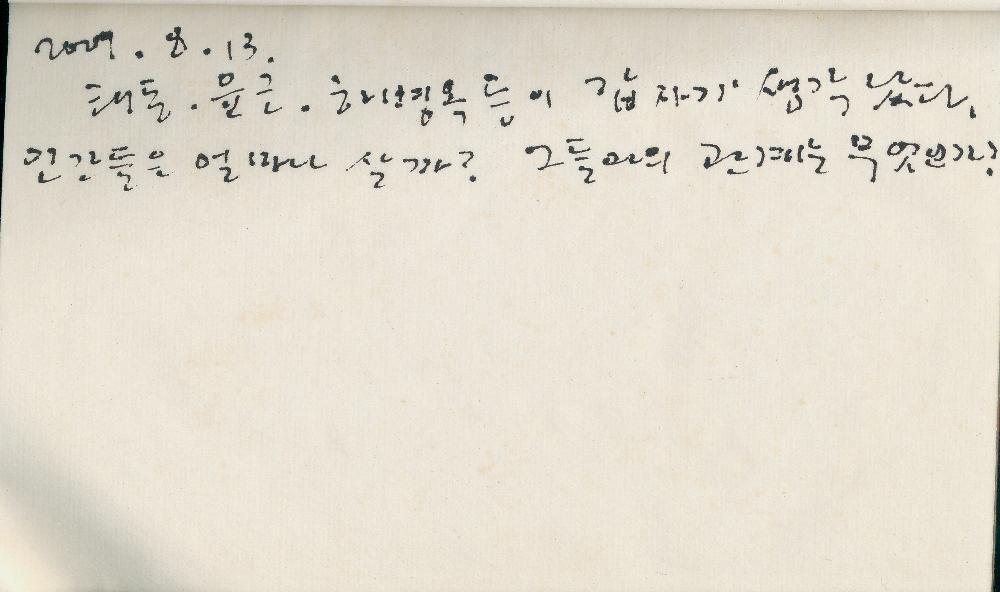 2009. 8. 13.
태돌. 윤근. 하명옥 등이 갑자기 생각 났다.
인간들은 얼마나 살까? 그들과의 관계는 무엇인가?